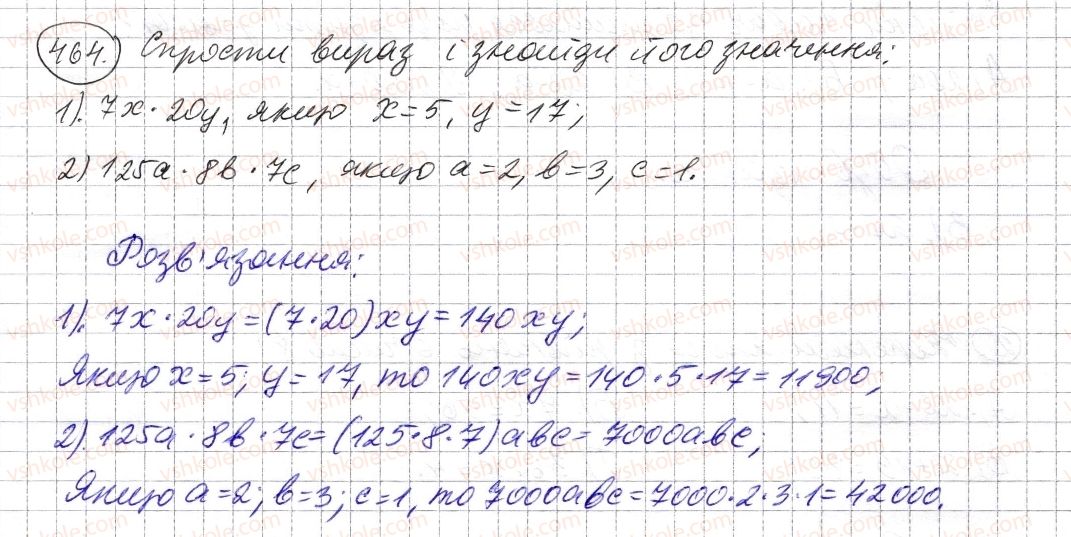 464. Спрости вираз і знайди його значення:
1). 7x · 20y, якщо x = 5, y = 17;
2) 125a · 8b · 7c, якщо a = 2, b = 3, c = 1.
Розв'язання:
1). 7x · 20y = (7 · 20) xy = 140 xy;
Якщо x = 5; y = 17, то 140xy = 140 · 5 · 17 = 11900;
2). 125a · 8b · 7c = (125 · 8 · 7) abc = 7000abc,
Якщо a = 2; b = 3; c = 1, то 7000abc = 7000 · 2 · 3 · 1 = 42000.